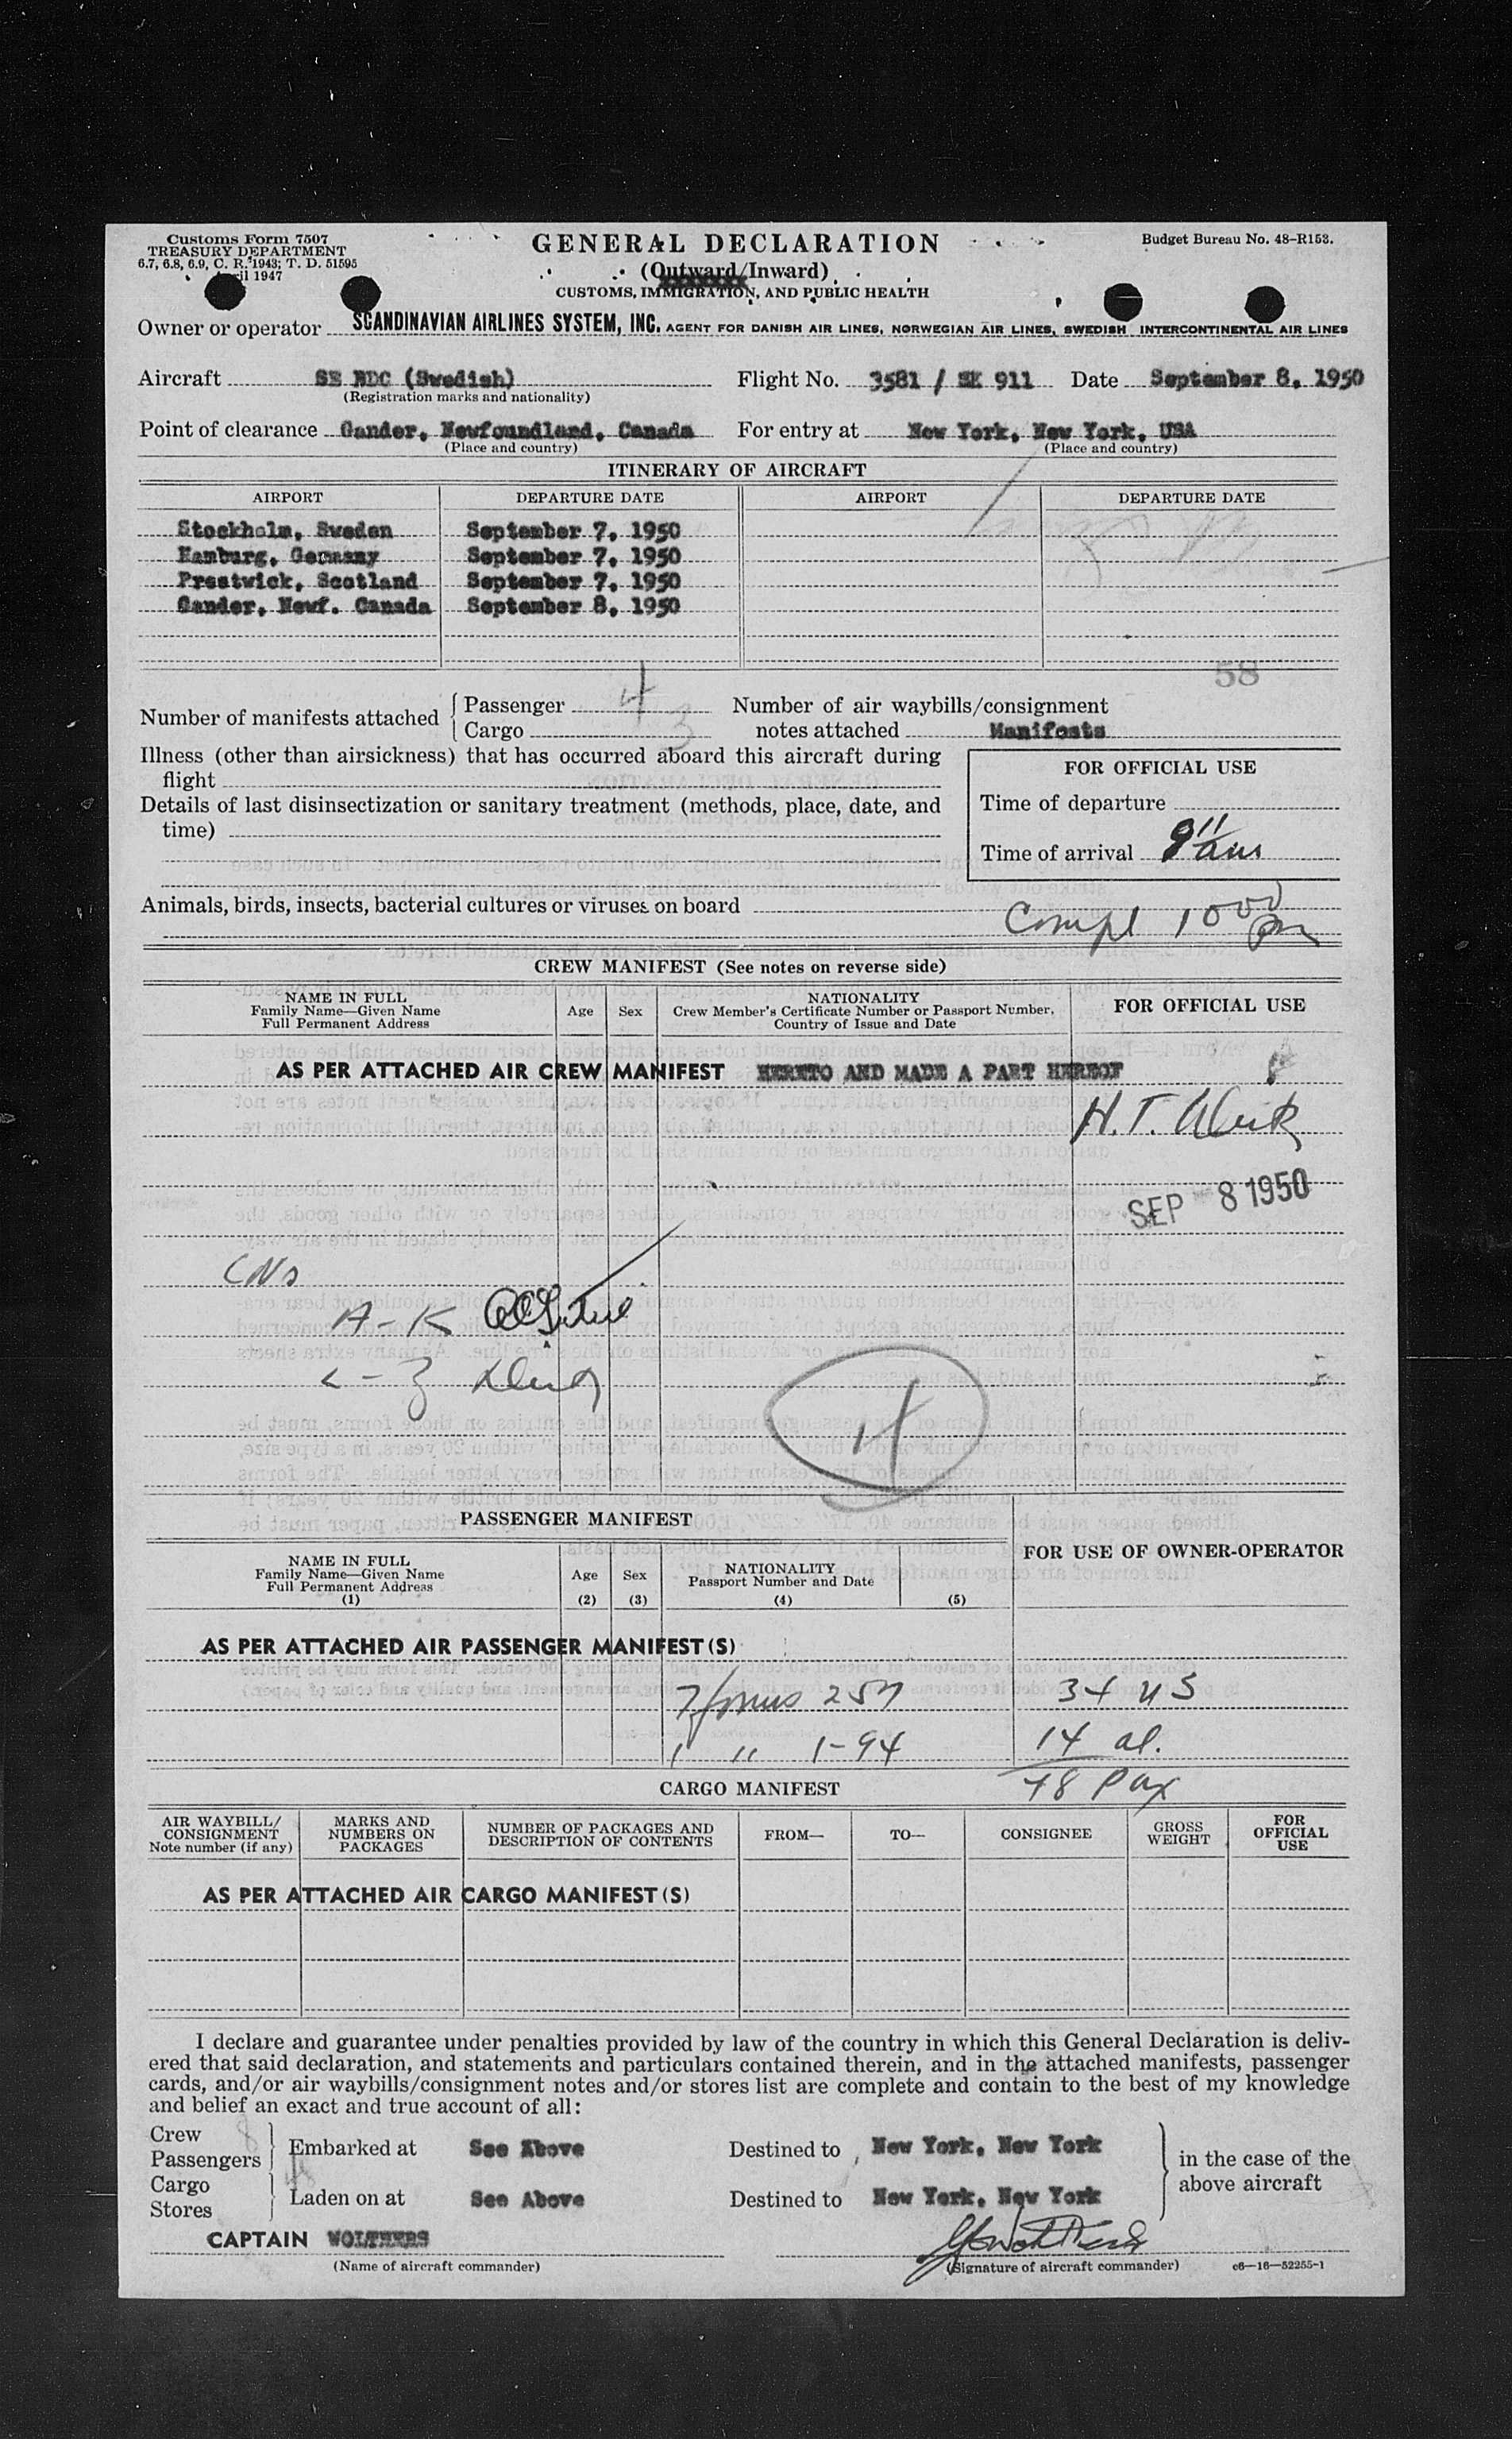 Customs Form 7507
TREASURY DEPARTMENT
6.7, 6.8, 6.9, C. R. 1943; T. D. 51595
1947
GENERAL DECLARATION
(Outward/Inward)
CUSTOMS, IMMIGRATION, AND PUBLIC HEALTH
Budget Bureau No. 48-R153.
Owner or operator SCANDINAVIAN AIRLINES SYSTEM, INC. AGENT FOR DANISH AIR LINES, NORWEGIAN AIR LINES, SWEDISH INTERCONTINENTAL AIR LINES
Aircraft SE BDC (Swedish) Flight No. 3581 / SK 911 Date September 8, 1950
(Registration marks and nationality)
Point of clearance Gander, Newfoundland, Canada For entry at New York, New York, USA
(Place and country) (Place and country)
ITINERARY OF AIRCRAFT
AIRPORT DEPARTURE DATE AIRPORT DEPARTURE DATE
Stockholm, Sweden September 7, 1950
Hamburg, Germany September 7, 1950
Prestwick, Scotland September 7, 1950
Gander, Newf. Canada September 8, 1950
58
Number of manifests attached Passenger 4 Number of air waybills/consignment
Cargo 3 notes attached Manifests
Illness (other than airsickness) that has occurred aboard this aircraft during
flight
FOR OFFICIAL USE
Details of last disinsectization or sanitary treatment (methods, place, date, and
time)
Time of departure
Time of arrival 9 11 am
Animals, birds, insects, bacterial cultures or viruses on board
Compl 1000 am
CREW MANIFEST (See notes on reverse side)
NAME IN FULL
Family Name—Given Name
Full Permanent Address
Age Sex
NATIONALITY
Crew Member's Certificate Number or Passport Number,
Country of Issue and Date
FOR OFFICIAL USE
AS PER ATTACHED AIR CREW MANIFEST HERETO AND MADE A PART HEREOF
H. T.
SEP 8 1950
A-K
4
PASSENGER MANIFEST
NAME IN FULL
Family Name—Given Name
Full Permanent Address
(1)
Age
(2)
Sex
(3)
NATIONALITY
Passport Number and Date
(4)
(5)
FOR USE OF OWNER-OPERATOR
AS PER ATTACHED AIR PASSENGER MANIFEST(S)
7 forms 257 34 US
1 " 1-94 14 al.
48 Pax
CARGO MANIFEST
AIR WAYBILL/
CONSIGNMENT
Note number (if any)
MARKS AND
NUMBERS ON
PACKAGES
NUMBER OF PACKAGES AND
DESCRIPTION OF CONTENTS
FROM—
TO—
CONSIGNEE
GROSS
WEIGHT
FOR
OFFICIAL
USE
AS PER ATTACHED AIR CARGO MANIFEST(S)
I declare and guarantee under penalties provided by law of the country in which this General Declaration is deliv-
ered that said declaration, and statements and particulars contained therein, and in the attached manifests, passenger
cards, and/or air waybills/consignment notes and/or stores list are complete and contain to the best of my knowledge
and belief an exact and true account of all:
Crew 8
Passengers 48
Cargo
Stores
Embarked at See Above Destined to New York, New York
Laden on at See Above Destined to New York, New York
in the case of the
above aircraft
CAPTAIN WOLTHERS
(Name of aircraft commander) (Signature of aircraft commander) c6—16—52255-1